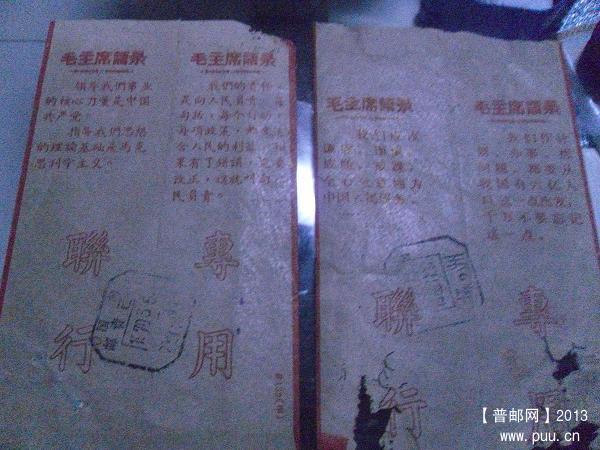 毛主席語录
领导我們事业
的核心力量是中国
共产党。
指导我們思想
的理論基础是馬克
思列宁主义。
毛主席語录
我們的責任，
是向人民負責。每
句話，每个行动，
每項政策，都要适
合人民的利益，如
果有了錯誤，定要
改正，这就叫向人
民負責。
聯行
專用
毛主席語录
我們应該
謙虛，謹慎，
戒驕，戒躁，
全心全意地为
中国人民服务。
毛主席語录
我們作計
划、办事、想
問題，都要从
我国有六亿人
口这一点出发，
千万不要忘記
这一点。
聯行
專用
【普邮网】2013
www.puu.cn